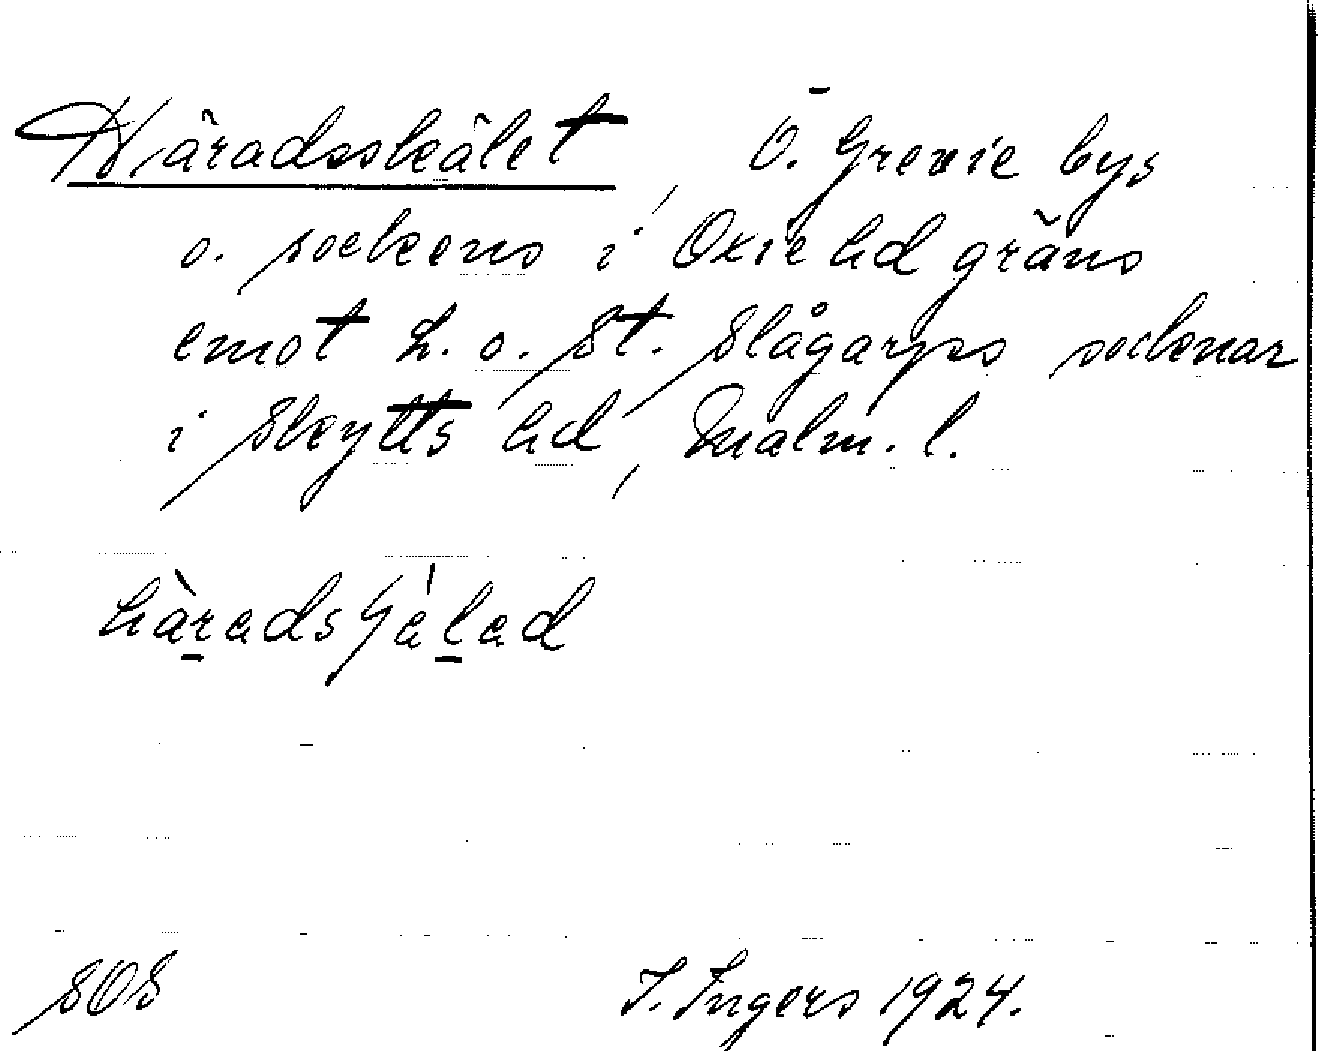 Häradsskälet, Ö. Grevie bys
o. sockens i Oxie hd gräns
emot L. o. St. Slågarps socknar
i Skytts hd, Malm. l.
SOS I. Ingers 1924.